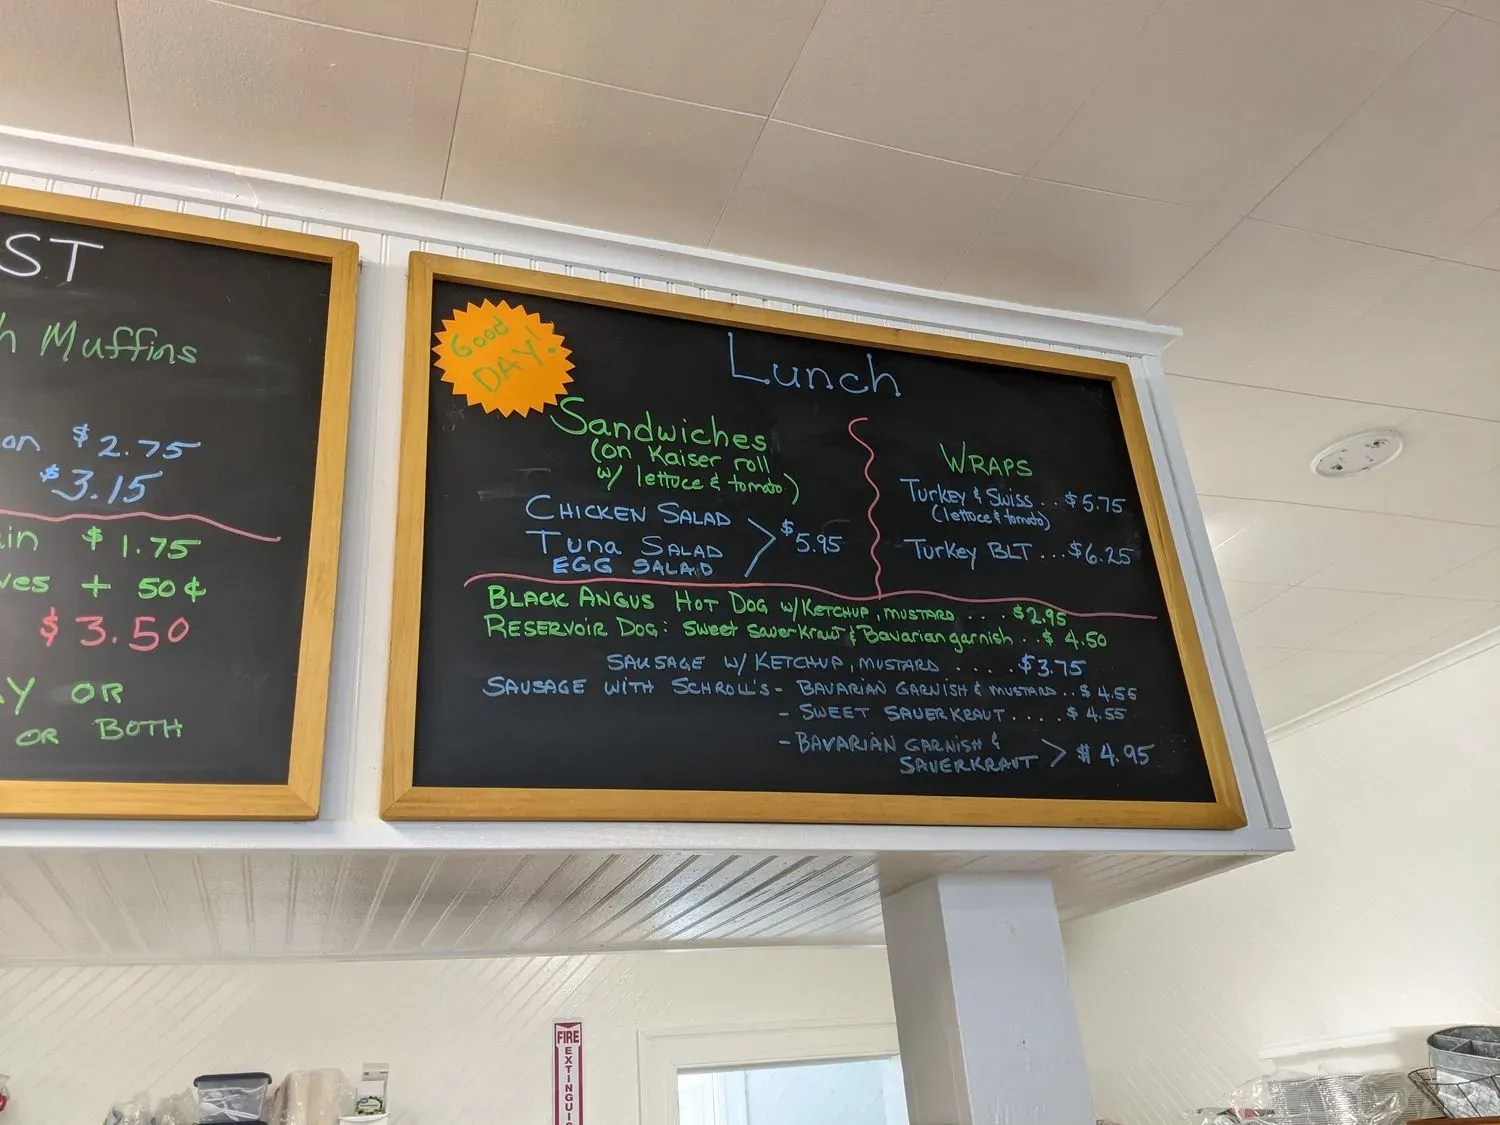 ST
Muffins
$2.75
$3.15
$1.75
+ 50¢
$3.50
OR
OR BOTH
Good
DAY!
Lunch
Sandwiches
(on Kaiser roll
w/ lettuce & tomato)
CHICKEN SALAD
Tuna SALAD
EGG SALAD
> $5.95
WRAPS
Turkey & Swiss .. $5.75
(lettuce & tomato)
Turkey BLT ... $6.25
BLACK ANGUS HOT DOG w/KETCHUP, MUSTARD ... $2.95
RESERVOIR DOG: Sweet Sauerkraut & Bavarian garnish .. $4.50
SAUSAGE W/KETCHUP, MUSTARD .... $3.75
SAUSAGE WITH SCHROLL'S - BAVARIAN GARNISH & MUSTARD .. $4.55
- SWEET SAUERKRAUT .... $4.55
- BAVARIAN GARNISH &
SAUERKRAUT > $4.95
FIRE
EXTINGUI